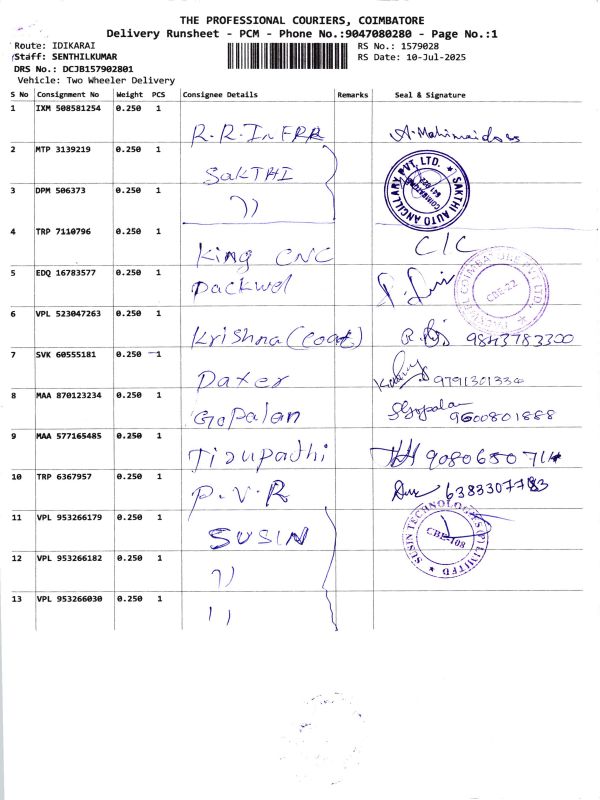 THE PROFESSIONAL COURIERS, COIMBATORE
Delivery Runsheet - PCM - Phone No.:9047080280 - Page No.:1
Route: IDIKARAI
RS No.: 1579028
Staff: SENTHILKUMAR
RS Date: 10-Jul-2025
DRS No.: DCJB157902801
Vehicle: Two Wheeler Delivery
S No Consignment No Weight PCS Consignee Details Remarks Seal & Signature
1 IXM 508581254 0.250 1
R.R.In FRR
2 MTP 3139219 0.250 1
SAKTHI
SAKTHI AUTO ANCILLARY PVT. LTD. ★ COIMBATORE
3 DPM 506373 0.250 1
")
4 TRP 7110796 0.250 1
King CNC C/C
5 EDQ 16783577 0.250 1
Packwel
COIMBATORE PVT LTD. CBE-22
6 VPL 523047263 0.250 1
Krishna (coat) 9843783300
7 SVK 60555181 1 0.250 1
Dater 9791301330
8 MAA 870123234 0.250 1
Gopalan SGopalan 9600801888
9 MAA 577165485 0.250 1
Tirupadhi
10 TRP 6367957 0.250 1
P.V.R
11 VPL 953266179 0.250 1
SUSIN
SUSIN TECHNOLOGIES (P) LIMITED ★ CBE-108
12 VPL 953266182 0.250 1
")
13 VPL 953266030 0.250 1
")